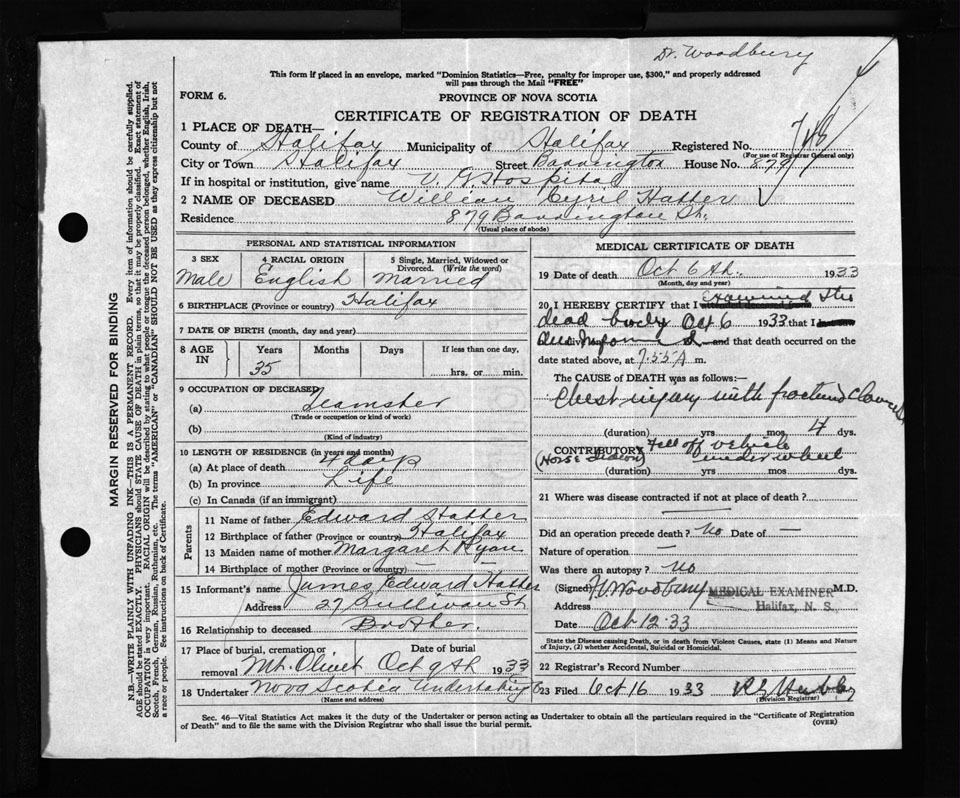 Dr. Woodbury
This form if placed in an envelope, marked "Dominion Statistics—Free, penalty for improper use, $300," and properly addressed
will pass through the Mail "FREE"
FORM 6.
PROVINCE OF NOVA SCOTIA
CERTIFICATE OF REGISTRATION OF DEATH
1 PLACE OF DEATH—
County of Halifax Municipality of Halifax Registered No.
(For use of Registrar General only)
City or Town Halifax Street Barrington House No. 879
If in hospital or institution, give name V. G. Hospital
2 NAME OF DECEASED William Cyril Hatter
Residence 879 Barrington St.
(Usual place of abode)
PERSONAL AND STATISTICAL INFORMATION
3 SEX 4 RACIAL ORIGIN 5 Single, Married, Widowed or
Divorced. (Write the word)
Male English Married
6 BIRTHPLACE (Province or country) Halifax
7 DATE OF BIRTH (month, day and year)
8 AGE IN Years Months Days If less than one day,
35 hrs. or min.
9 OCCUPATION OF DECEASED
(a) Teamster
(Trade or occupation or kind of work)
(b)
(Kind of industry)
10 LENGTH OF RESIDENCE (in years and months)
(a) At place of death 4 days
(b) In province Life
(c) In Canada (if an immigrant)
Parents
11 Name of father Edward Hatter
12 Birthplace of father (Province or country) Halifax
13 Maiden name of mother Margaret Ryan
14 Birthplace of mother (Province or country) — —
15 Informant's name James Edward Hatter
Address 27 Sullivan St
16 Relationship to deceased Brother.
17 Place of burial, cremation or removal Date of burial
Mt. Olivet Oct 9th 1933
18 Undertaker Nova Scotia Undertaking Co
(Name and address)
MEDICAL CERTIFICATE OF DEATH
19 Date of death Oct 6th. 1933
(Month, day and year)
20 I HEREBY CERTIFY that I examined the
dead body Oct 6 1933 that I
and that death occurred on the
date stated above, at 7.55 A m.
The CAUSE of DEATH was as follows:—
Chest injury with fractured
(duration) yrs mos 4 dys.
CONTRIBUTORY Fell off vehicle
(Horse drawn) under wheel
(duration) yrs. mos. dys.
21 Where was disease contracted if not at place of death?
Did an operation precede death? No Date of —
Nature of operation —
Was there an autopsy? no
(Signed) Woodbury MEDICAL EXAMINER M.D.
Address Halifax, N. S.
Date Oct 12·33
State the Disease causing Death, or in death from Violent Causes, state (1) Means and Nature
of Injury, (2) whether Accidental, Suicidal or Homicidal.
22 Registrar's Record Number
23 Filed Oct 16 1933
(Division Registrar)
Sec. 46—Vital Statistics Act makes it the duty of the Undertaker or person acting as Undertaker to obtain all the particulars required in the "Certificate of Registration
of Death" and to file the same with the Division Registrar who shall issue the burial permit.
(OVER)
MARGIN RESERVED FOR BINDING
N.B.—WRITE PLAINLY WITH UNFADING INK—THIS IS A PERMANENT RECORD. Every item of information should be carefully supplied.
AGE should be stated EXACTLY. PHYSICIANS should STATE CAUSE OF DEATH in plain terms, so that it may be properly classified. Exact statement of
OCCUPATION is very important. RACIAL ORIGIN will be described by stating to what people or tongue the deceased person belonged, whether English, Irish,
Scotch, French, German, Russian, Ruthenian, etc. The terms "AMERICAN" or "CANADIAN" SHOULD NOT BE USED as they express citizenship but not
a race or people. See instructions on back of Certificate.